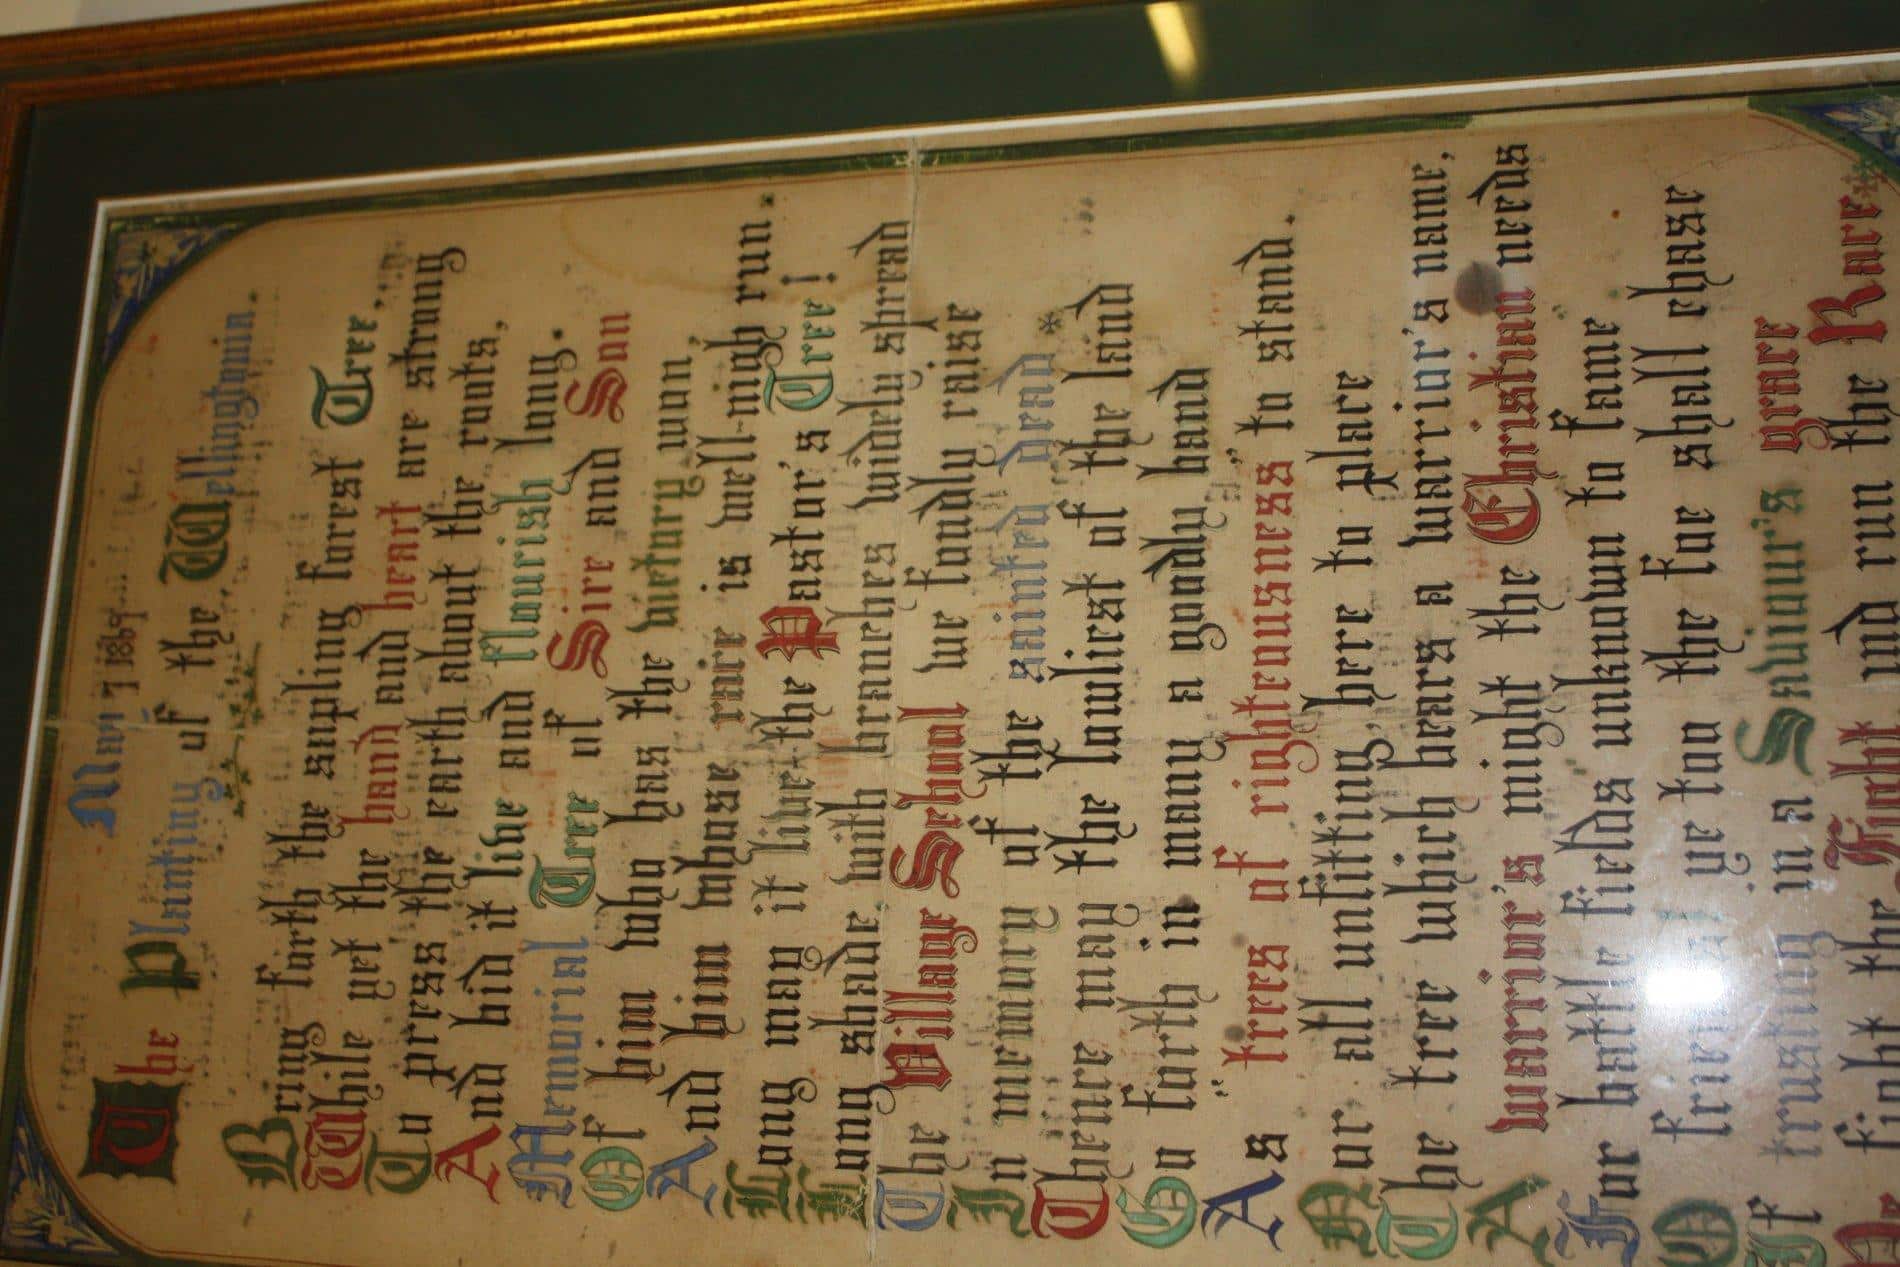 May 7 1869
The Planting of the Wellingtonia.
Bring forth the sapling forest Tree,
While yet the hand and heart are strong
To press the earth about the roots,
And bid it live and flourish long.
Memorial Tree of Sire and Son
Of him who has the victory won,
And him whose race is well-nigh run.
Long may it live the Pastor's Tree!
Long shade with branches widely spread
The Village School we fondly raise
In memory of the sainted dead *
Thence may the lowliest of the land
Go forth in many a goodly band
As "trees of righteousness" to stand.
Nor all unfitting, here to place
The tree which bears a warrior's name,
A warrior's might the Christian needs
For battle fields unknown to fame
O friends! ye too the foe shall chase
If trusting in a Saviour's grace
Ye fight the Fight and run the Race **